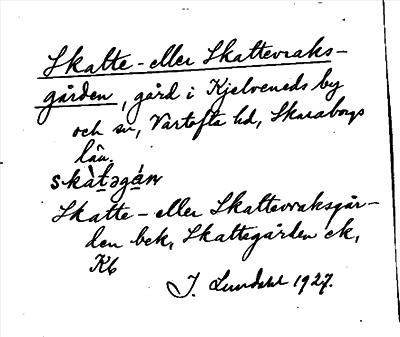 Skatte- eller Skattevraks-
gården, gård i Kjelveneds by
och sn, Vartofta hd, Skaraborgs
län.
skàtəgán
Skatte- eller Skattevraksgår-
den bek, Skattegården ek,
Kb
J. Lundahl 1927.